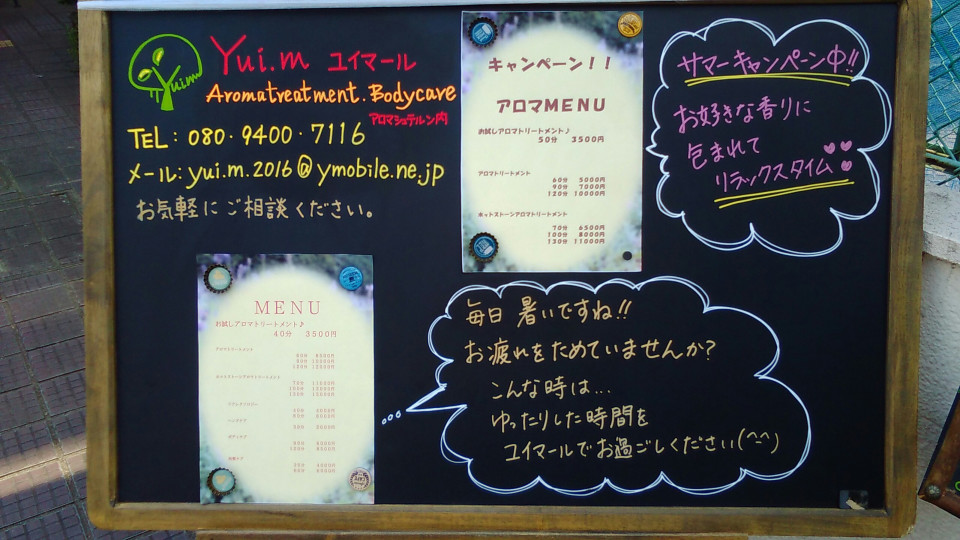 Yui.m
Yui.m ユイマール
Aromatreatment.Bodycare
アロマシュテルン内
TEL:080・9400・7116
メール:yui.m.2016@ymobile.ne.jp
お気軽にご相談ください。
キャンペーン!!
アロマMENU
お試しアロマトリートメント♪
50分 3500円
アロマトリートメント
60分 5000円
90分 7000円
120分 10000円
ホットストーンアロマトリートメント
70分 6500円
100分 8000円
130分 11000円
サマーキャンペーン中!!
お好きな香りに
包まれて
リラックスタイム
MENU
お試しアロマトリートメント♪
40分 3500円
アロマトリートメント
ホットストーンアロマトリートメント
毎日 暑いですね!!
お疲れをためていませんか?
こんな時は...
ゆったりした時間を
ユイマールでお過ごしください(^-^)